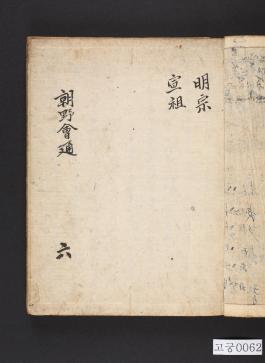 明宗
宣祖
朝野會通
六
고궁0062